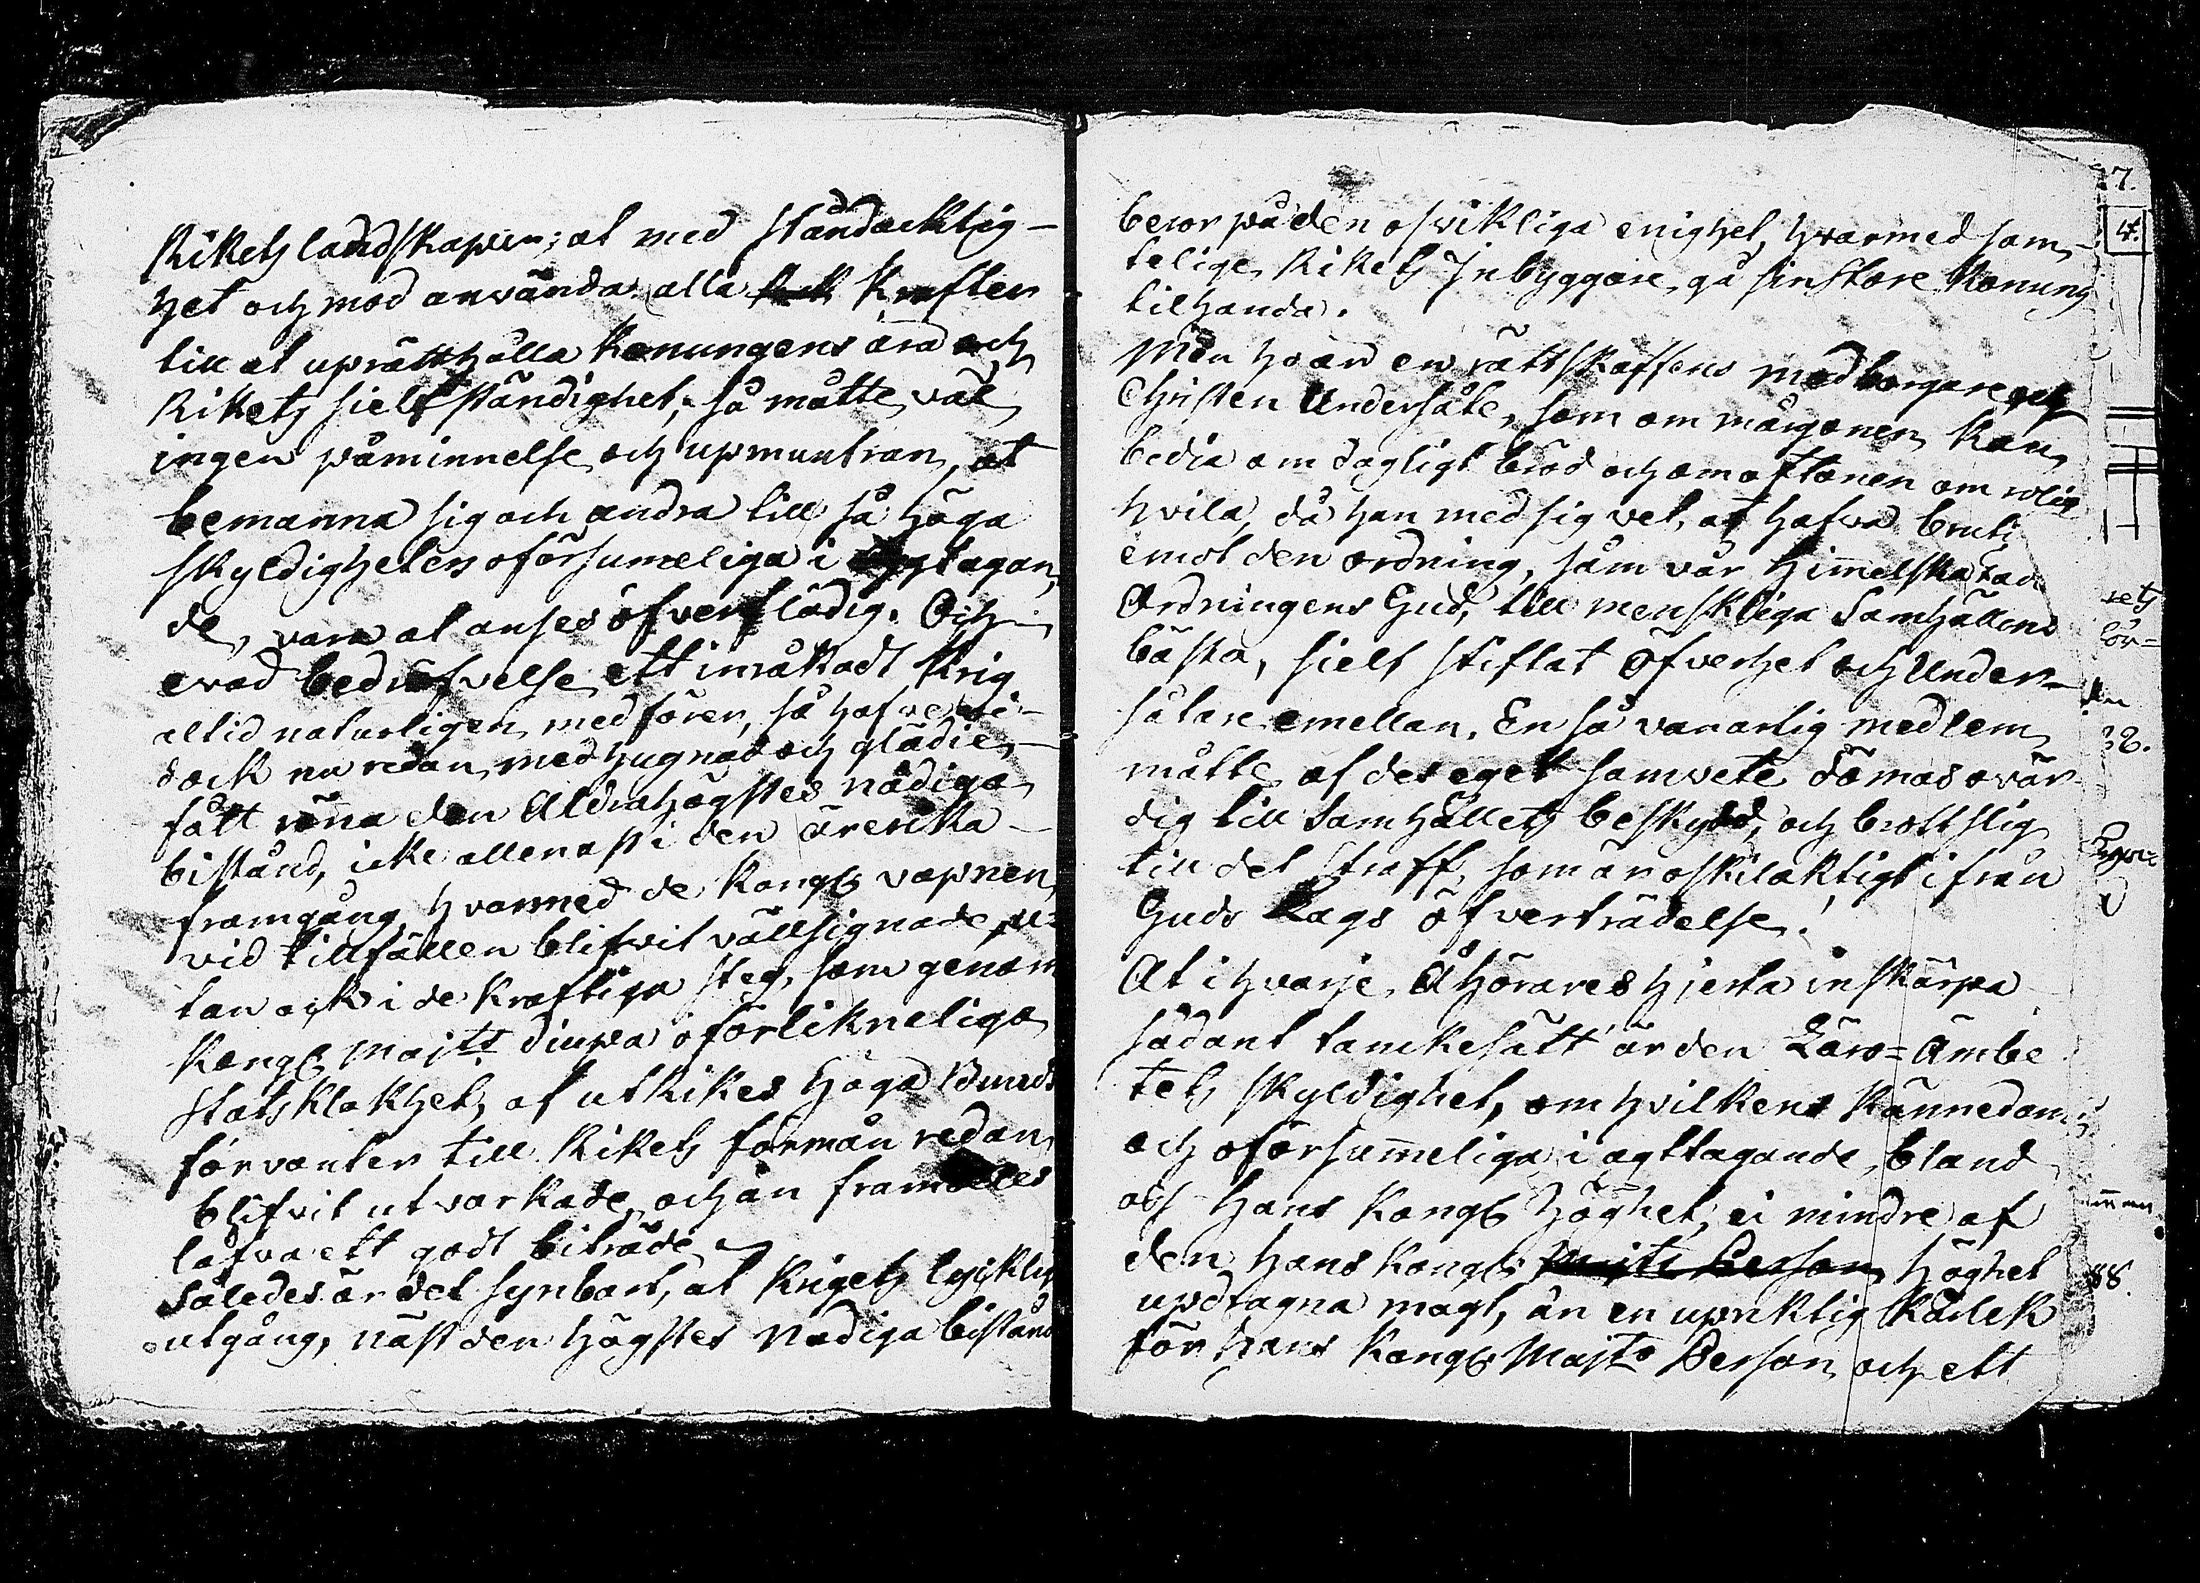 Rikets landskaper; at med ståndacktlig-
het och mod använda alla kraften
till at uprätthålla Konungens ära och
Rikets sielfständighet; så måtte väl
ingen påminnelse och upmuntran, at
bemanna sig och andra till så höga
skyldigheters oförsumeliga i agtagan,
de, vara at anses öfverflödig. Och
evad bedröfvelse ett inråkadt krig
altid naturligen medförer, så hafve vi-
dock nu redan med hugnad och glädie,
fått röna den Aldrahögstes nådiga
bistånd, icke allenast i den ärerika
framgång hvarmed de Kongl vapnen
vid tillfällen blifvit vällsignade, u=
tan ock i de kraftiga steg, som genom
Kongl Majtts diupa oförlikneliga
Statsklokhet, af utRikes höga Bunds
förvanter till Rikets förmån redan
blifvit utvarkade, och än framdeles
låfva ett godt biträde
Således är det synbart, at Krigets lycklig
utgång, näst den Högstes Nådiga bistånd
beror på den osvikliga enighet, hvarmed sam-
telige Rikets Inbyggare, gå sin Store Konung
tilhanda.
Men ho är en rättskaffens medborgare och
Christen Undersåte, som om morgonen kan
bedia om dagligt bröd och om aftonen om rolig
hvila, då han med sig vet, at hafva brutit
emot den ordning, som vår Himmelska Fader
Ordningens Gud, till menskliga Samhällens
bästa, sielf stiftat Öfverhet och Under-
såtare emellan. En så vanartig medlem
måtte af des eget samvete dömas ovär
dig till Samhällets beskydd, och brottslig
till det straff, som är oskilaktigt ifrån
Guds Lags öfverträdelse!
At i hvarje Åhörares hjerta inskärpa
sådant tanckesätt är den Läro=Ämbe
tets skyldighet, om hvilkens kännedom
och oförsummeliga i agttagande bland
oss Hans Kongl Höghet, ei mindre af
den Hans Kongl Majts Person Höghet
updragna magt, än en uprigtig Kärlek
för Hans Kongl Majts Person och ett
7.
4.
rets
lör=
den
38.
88.